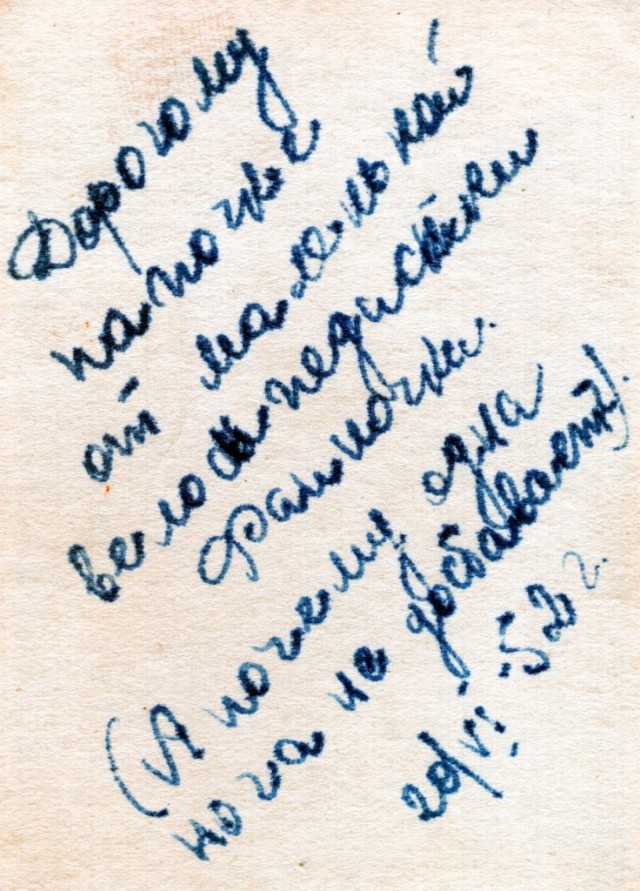 Дорогому
папочке
от маленькой
велосипедистки
фаиночки.
(А почему одна
нога не доставает?)
20/VI 52 г.